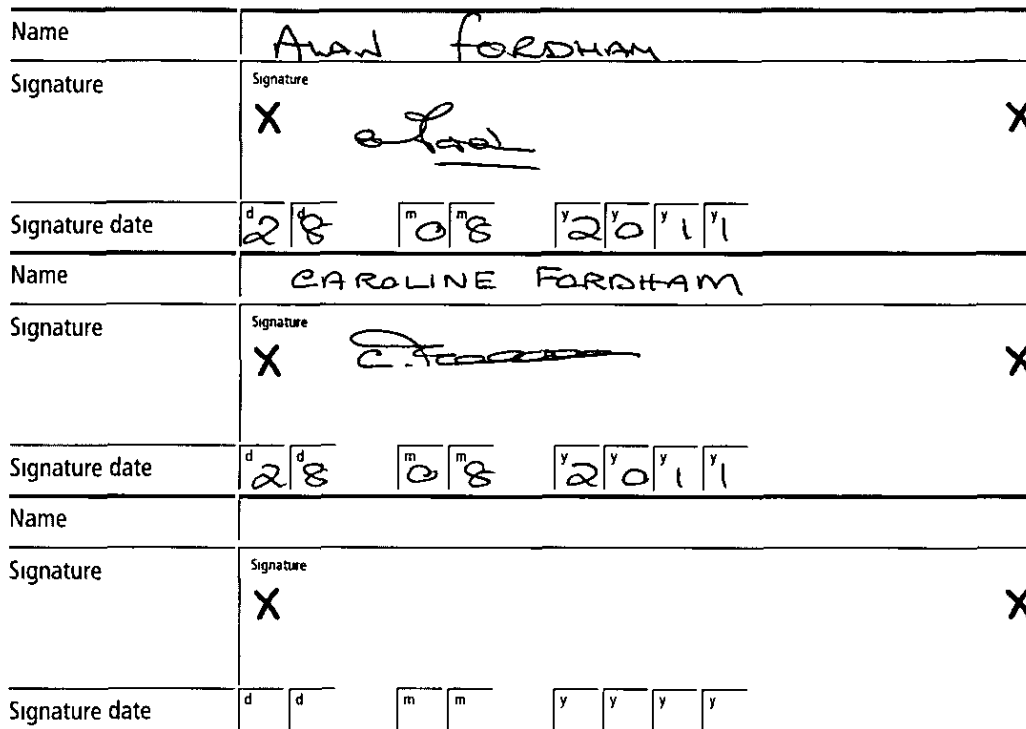 Name ALAN FORDHAM
Signature Signature
X X
Signature date d2 d8 m0 m8 y2 y0 y1 y1
Name CAROLINE FORDHAM
Signature Signature
X C. X
Signature date d2 d8 m0 m8 y2 y0 y1 y1
Name
Signature Signature
X X
Signature date d d m m y y y y